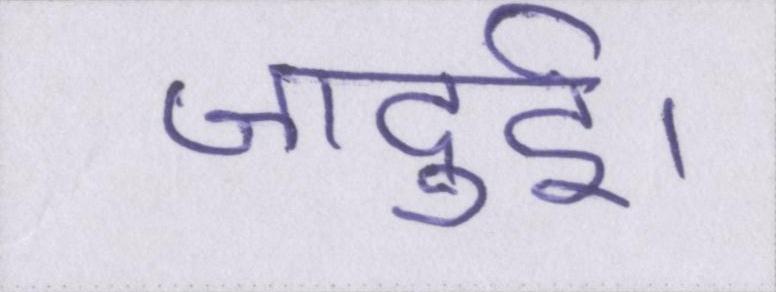 जादुई।